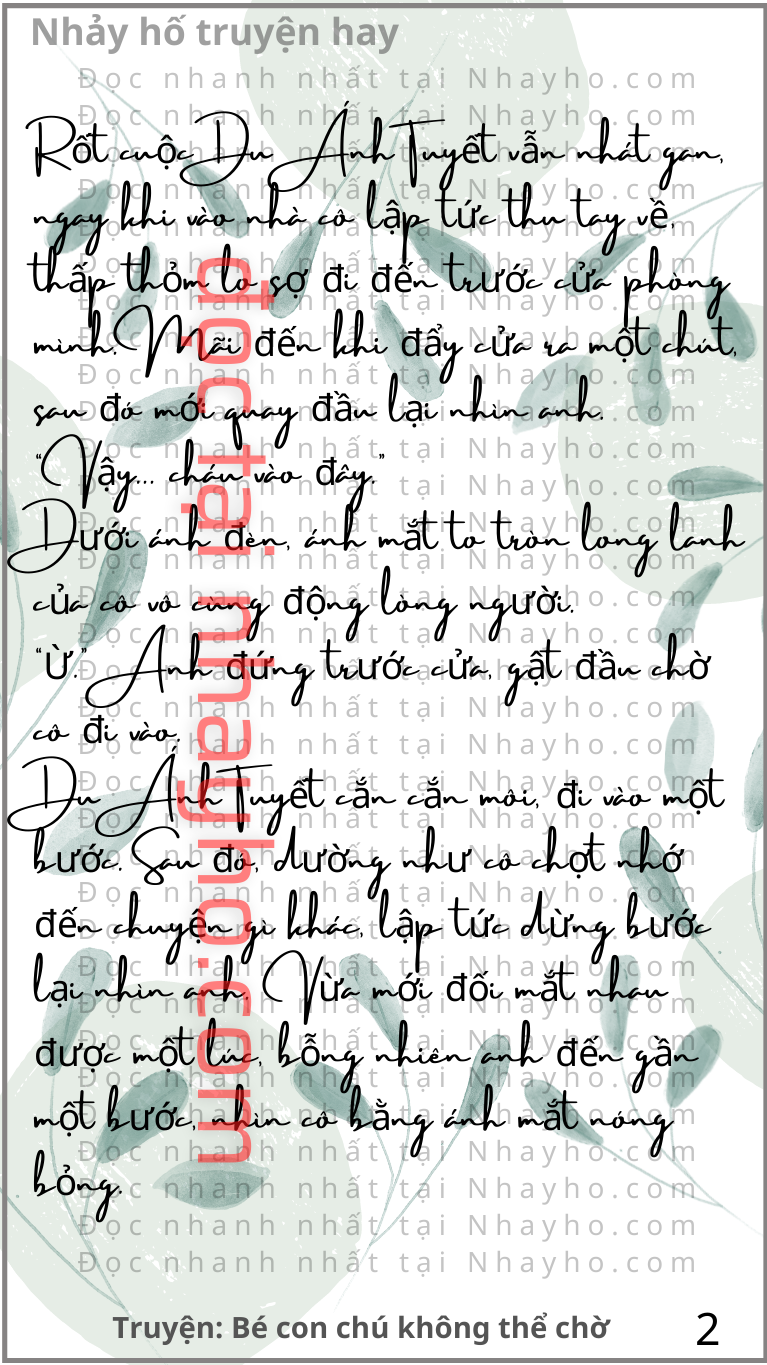 Nhảy hố truyện hay
Đọc nhanh nhất tại Nhayho.com
Đọc nhanh nhất tại Nhayho.com
Rốt cuộc Du Ánh Tuyết vẫn nhát gan,
ngay khi vào nhà cô lập tức thu tay về,
thấp thỏm lo sợ đi đến trước cửa phòng
mình. Mãi đến khi đẩy cửa ra một chút,
sau đó mới quay đầu lại nhìn anh.
“Vậy... cháu vào đây.”
Dưới ánh đèn, ánh mắt to tròn long lanh
của cô vô cùng động lòng người.
“Ừ.” Anh đứng trước cửa, gật đầu chờ
cô đi vào.
Du Ánh Tuyết cắn cắn môi, đi vào một
bước. Sau đó, dường như cô chợt nhớ
đến chuyện gì khác, lập tức dừng bước
lại nhìn anh. Vừa mới đối mắt nhau
được một lúc, bỗng nhiên anh đến gần
một bước, nhìn cô bằng ánh mắt nóng
bỏng.
đọc tại nhayho.com
Đọc nhanh nhất tại Nhayho.com
Đọc nhanh nhất tại Nhayho.com
Truyện: Bé con chú không thể chờ
2